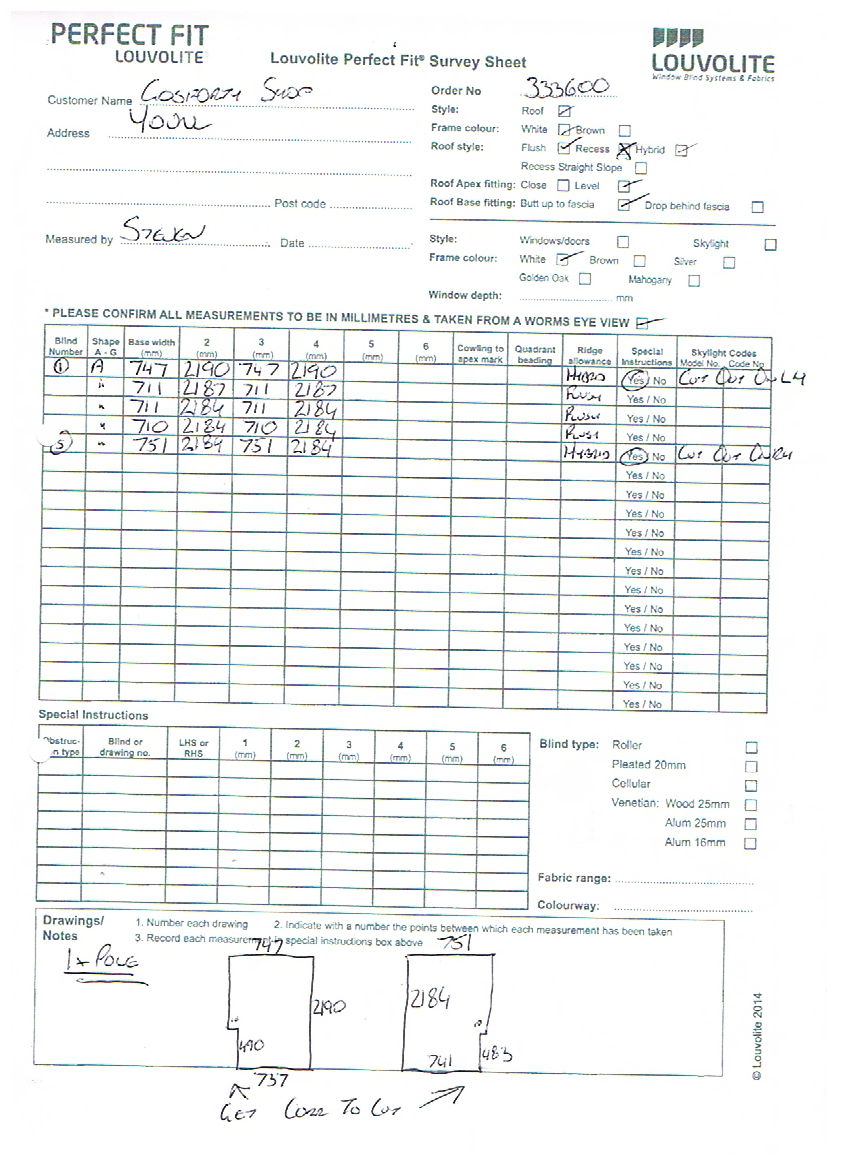 PERFECT FIT
LOUVOLITE
Louvolite Perfect Fit® Survey Sheet
LOUVOLITE
Window Blind Systems & Fabrics
Customer Name GOSFORTH SHOP
Address
Post code
Measured by STEVEN Date
Order No 333600
Style: Roof
Frame colour: White Brown
Roof style: Flush Recess Hybrid
Recess Straight Slope
Roof Apex fitting: Close Level
Roof Base fitting: Butt up to fascia Drop behind fascia
Style: Windows/doors Skylight
Frame colour: White Brown Silver
Golden Oak Mahogany
Window depth: mm
* PLEASE CONFIRM ALL MEASUREMENTS TO BE IN MILLIMETRES & TAKEN FROM A WORMS EYE VIEW
Blind Number Shape A - G Base width (mm) 2 (mm) 3 (mm) 4 (mm) 5 (mm) 6 (mm) Cowling to apex mark Quadrant beading Ridge allowance Special Instructions Skylight Codes Model No. Code No.
1 A 747 2190 747 2190 HYBRID Yes / No CUT OUT ON LH
" 711 2187 711 2187 FLUSH Yes / No
" 711 2184 711 2184 FLUSH Yes / No
" 710 2184 710 2184 FLUSH Yes / No
5 " 751 2184 751 2184 HYBRID Yes / No CUT OUT ON RH
Yes / No
Yes / No
Yes / No
Yes / No
Yes / No
Yes / No
Yes / No
Yes / No
Yes / No
Yes / No
Yes / No
Yes / No
Yes / No
Special Instructions
Obstruc-
n type Blind or drawing no. LHS or RHS 1 (mm) 2 (mm) 3 (mm) 4 (mm) 5 (mm) 6 (mm)
Blind type: Roller
Pleated 20mm
Cellular
Venetian: Wood 25mm
Alum 25mm
Alum 16mm
Fabric range:
Colourway:
Drawings/
Notes
1. Number each drawing 2. Indicate with a number the points between which each measurement has been taken
3. Record each measurement in special instructions box above
1 x POLE
747
2190
490
737
751
2184
741
483
GET CODE TO CUT
© Louvolite 2014